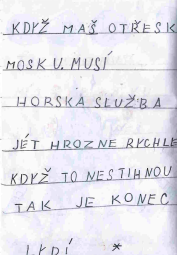 KDYŽ MAŠ OTŘESK
MOSKU. MUSÍ
HORSKÁ SLUŽBA
JÉT HROZNE RYCHLE
KDYŽ TO NESTIHNOU
TAK JE KONEC